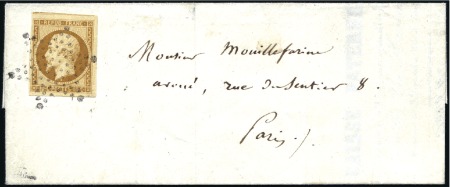 REPUB. FRANC.
Monsieur Mouillefarine
avoué, rue du Sentier 8.
Paris